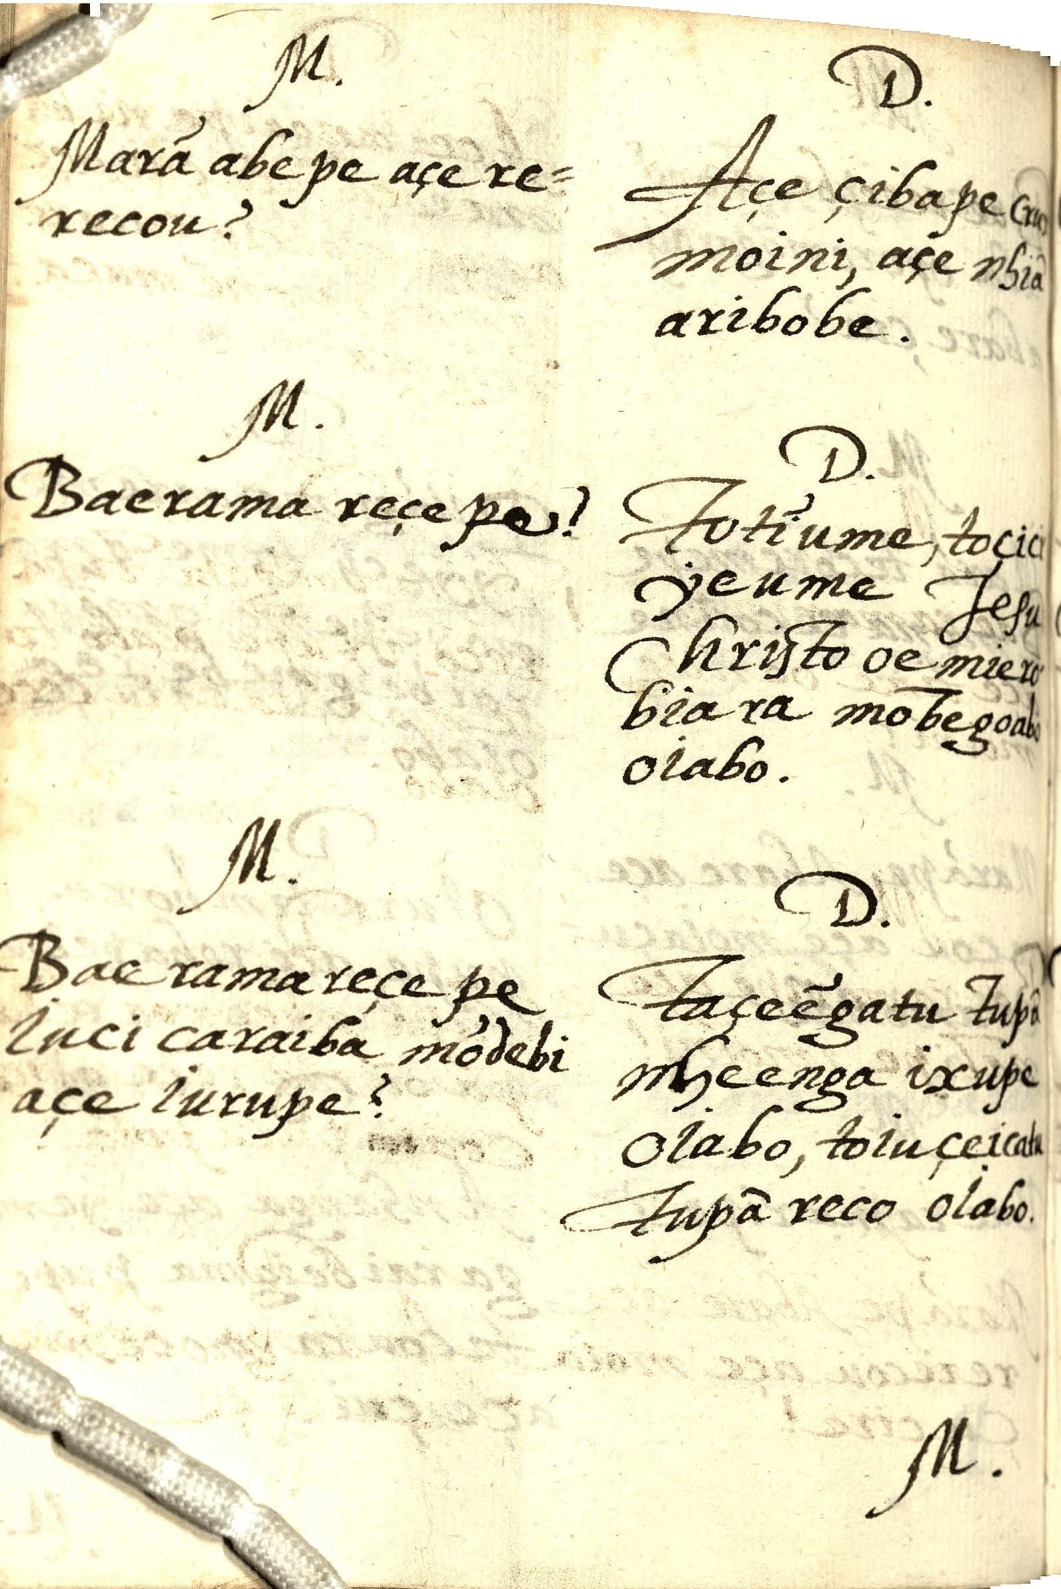 M.
Marã abe pe açe re=
recou?
D.
Açe çibape
moini, açe nhiã
aribobe.
M.
Baerama reçe pe?
D.
Totĩ ume, toçici
ÿeume Jesu
Christo oe miero
biara mõbegoabo
oiabo.
M.
Bae rama reçe pe
Iuci caraiba mõdebi
açe Iurupe?
D.
Taçeẽgatu tupã
nheenga ixupe
oiabo, toiuçeicatu
tupã reco oiabo.
M.